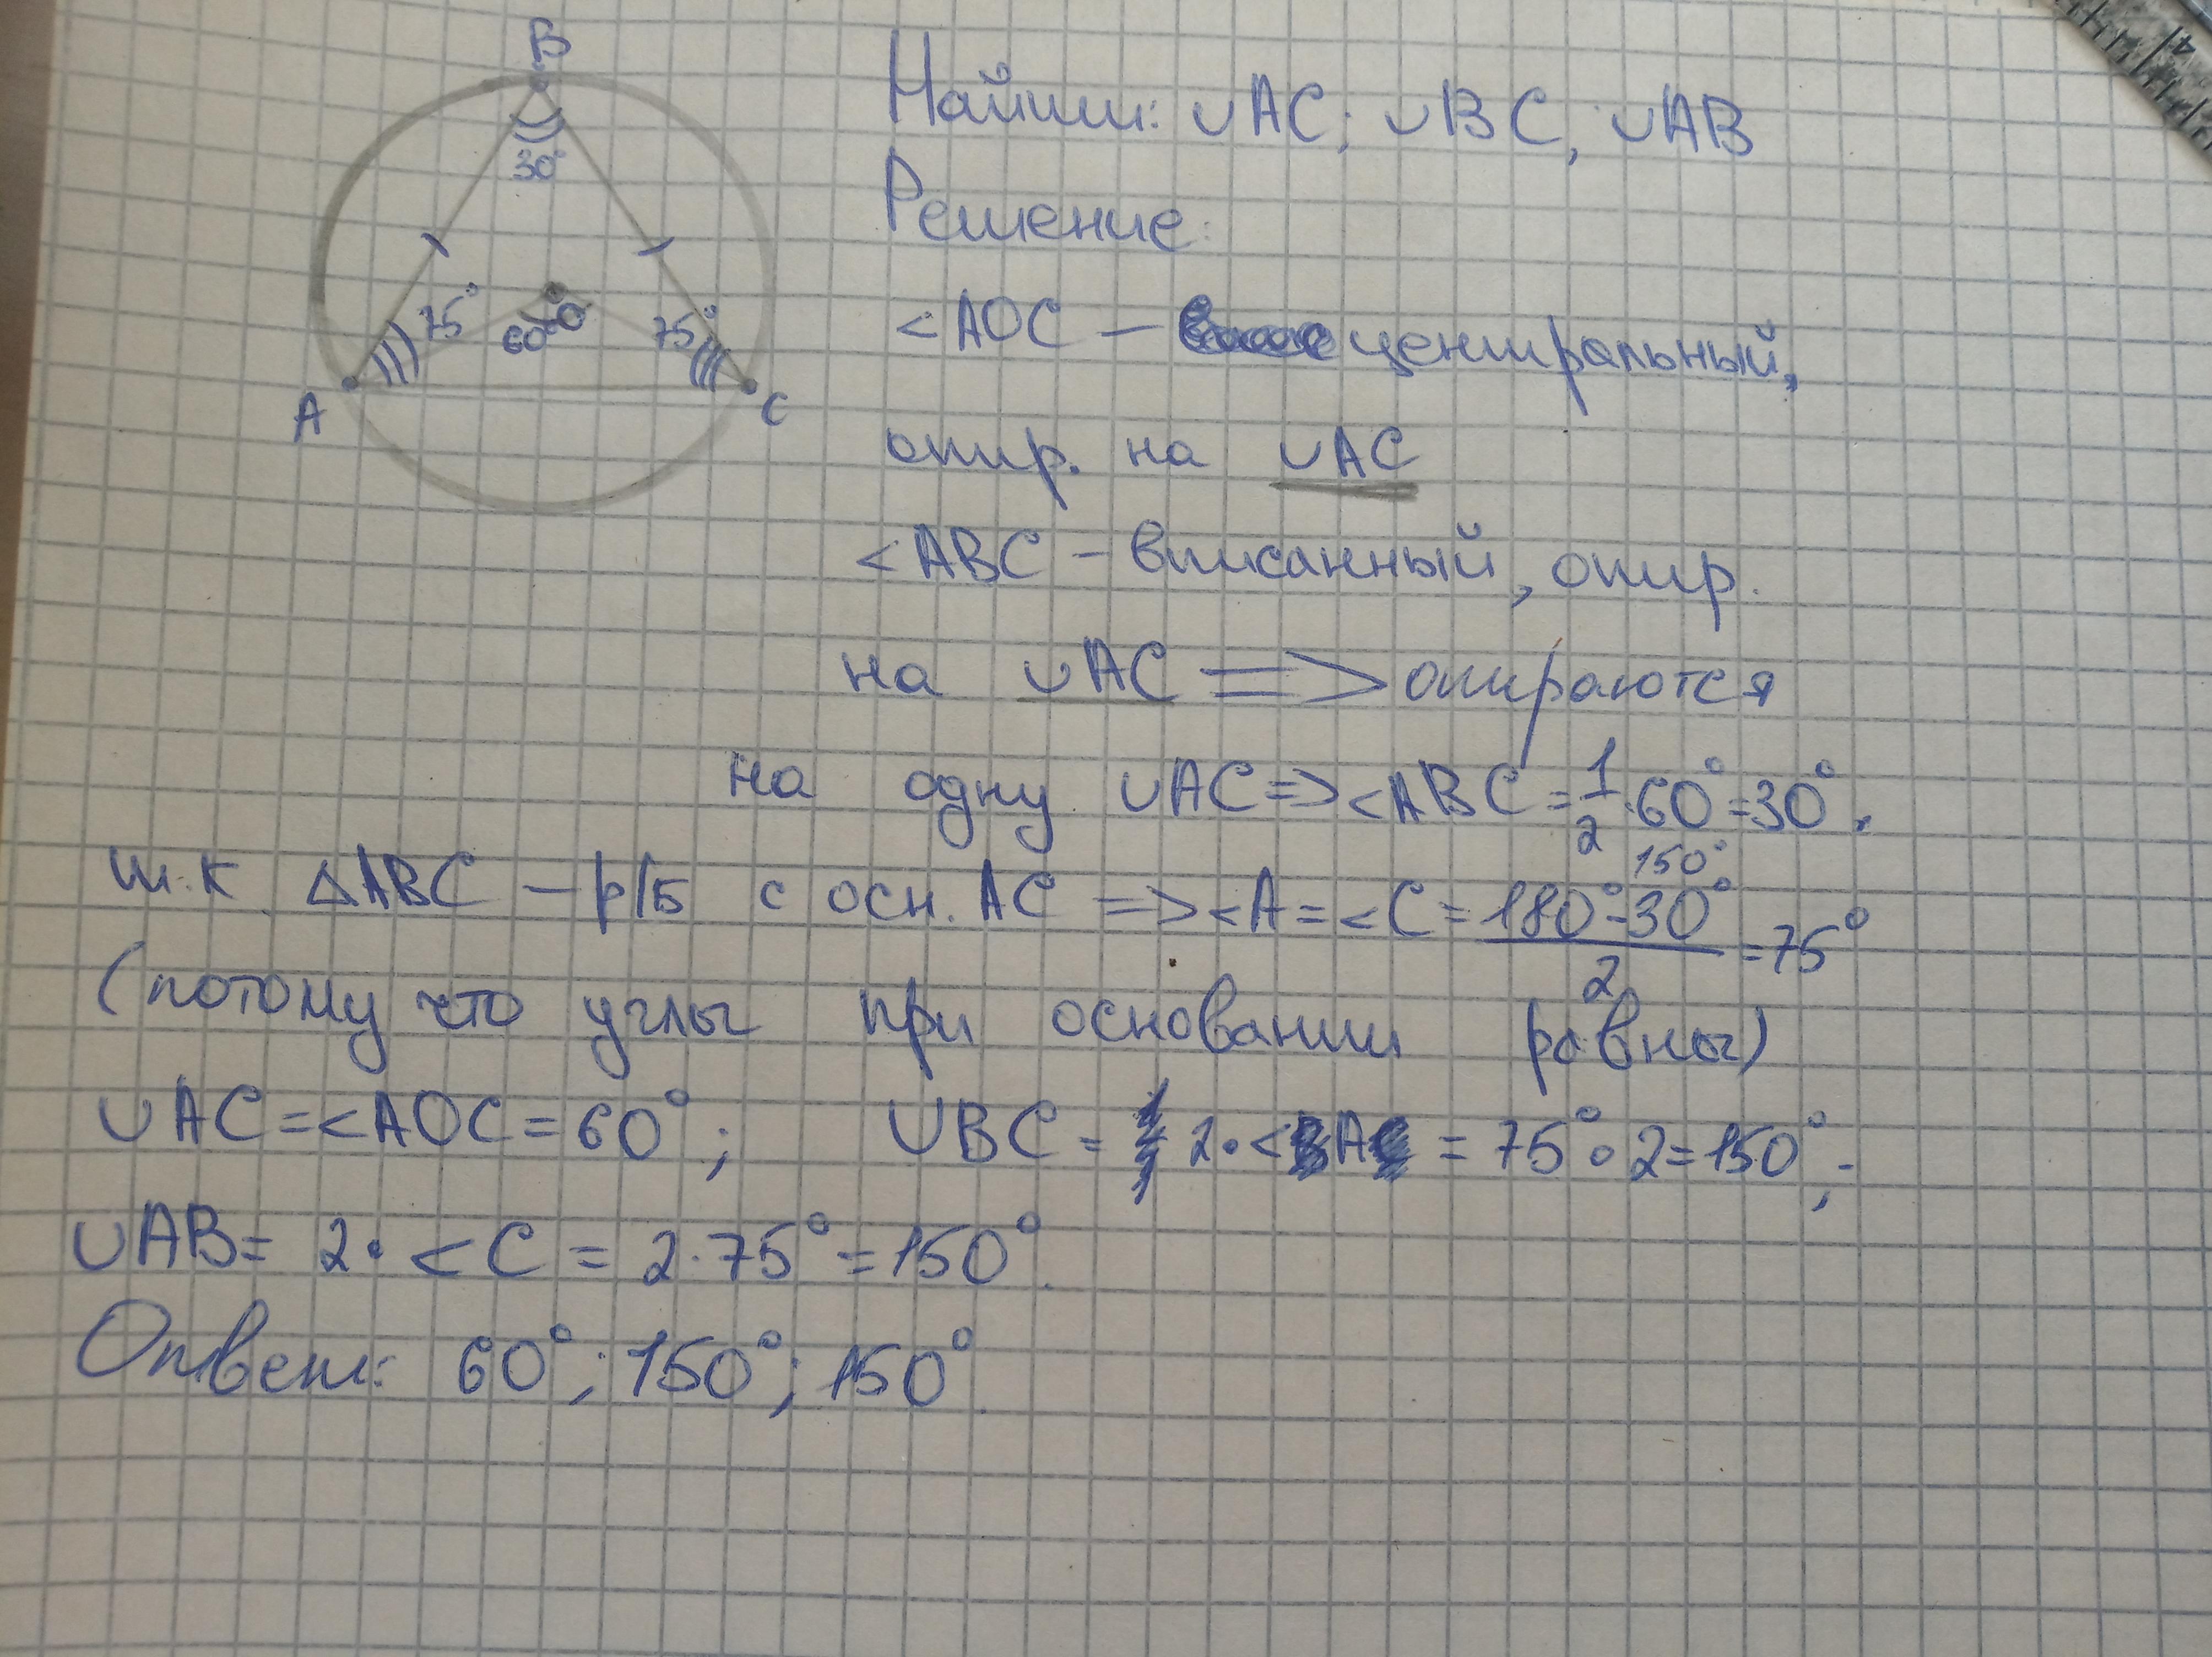 B
30°
75°
60°
O
75°
A
C
Найти: ∪AC; ∪BC, ∪AB
Решение:
<AOC – центральный,
опир. на ∪AC
<ABC – вписанный, опир.
на ∪AC => опираются
на одну ∪AC => <ABC = 1/2 · 60° = 30°.
150°
т.к. △ABC – р/б с осн. AC => <A = <C = (180° - 30°)/2 = 75°
(потому что углы при основании равны)
∪AC = <AOC = 60°; ∪BC = 2 · <A = 75° · 2 = 150°;
∪AB = 2 · <C = 2 · 75° = 150°.
Ответ: 60°; 150°; 150°.
4